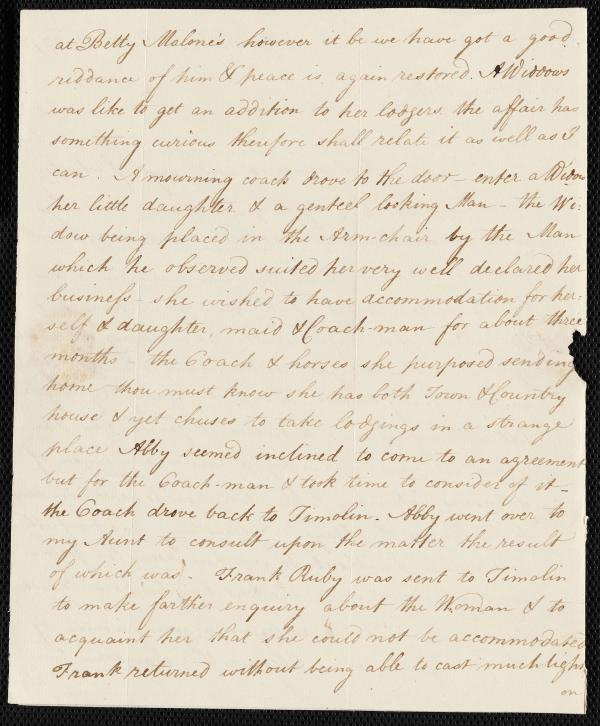 at Betty Malone's however it be we have got a good
riddance of him & peace is again restored. A Widdows
was like to get an addition to her lodgers the affair has
something curious therefore shall relate it as well as I
can. A mourning coach drove to the door – enter a Widow
her little daughter & a genteel looking Man – the Wi:
dow being placed in the Arm-chair by the Man
which he observed suited her very well declared her
business – she wished to have accommodation for her:
self & daughter, maid & Coach-man for about three
months – the Coach & horses she purposed sending
home thou must know she has both Town & Country
house & yet chuses to take lodgings in a strange
place Abby seemed inclined to come to an agreement
but for the Coach-man & took time to consider of it –
the Coach drove back to Timolin. Abby went over to
my Aunt to consult upon the matter the result
of which was. Frank Ruby was sent to Timolin
to make farther enquiry about the Woman & to
acquaint her that she could not be accommodated
Frank returned without being able to cast much light
on